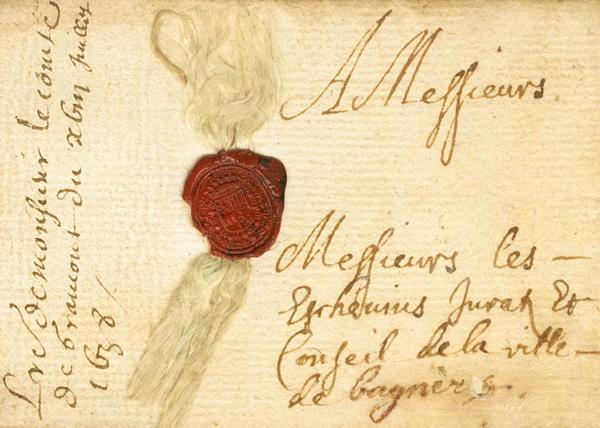 A Messieurs
Messieurs les
Eschevins Juratz Et
Conseil de la ville
de bagneres.
Lre de monsieur le comte
de Gramont du xbiii juillet
1638